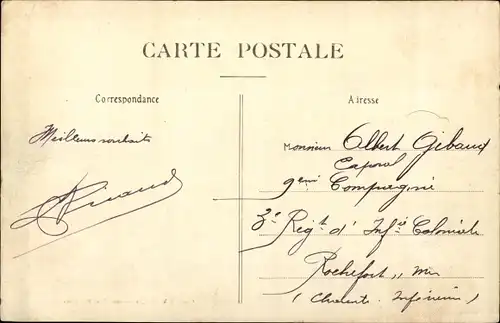 CARTE POSTALE
Correspondance
Adresse
Meilleurs souhaits
Monsieur Albert Gibaud
Caporal
9eme Compagnie
3e Regt d' Infie Coloniale
Rochefort s/ mer
(Charente Inférieure)